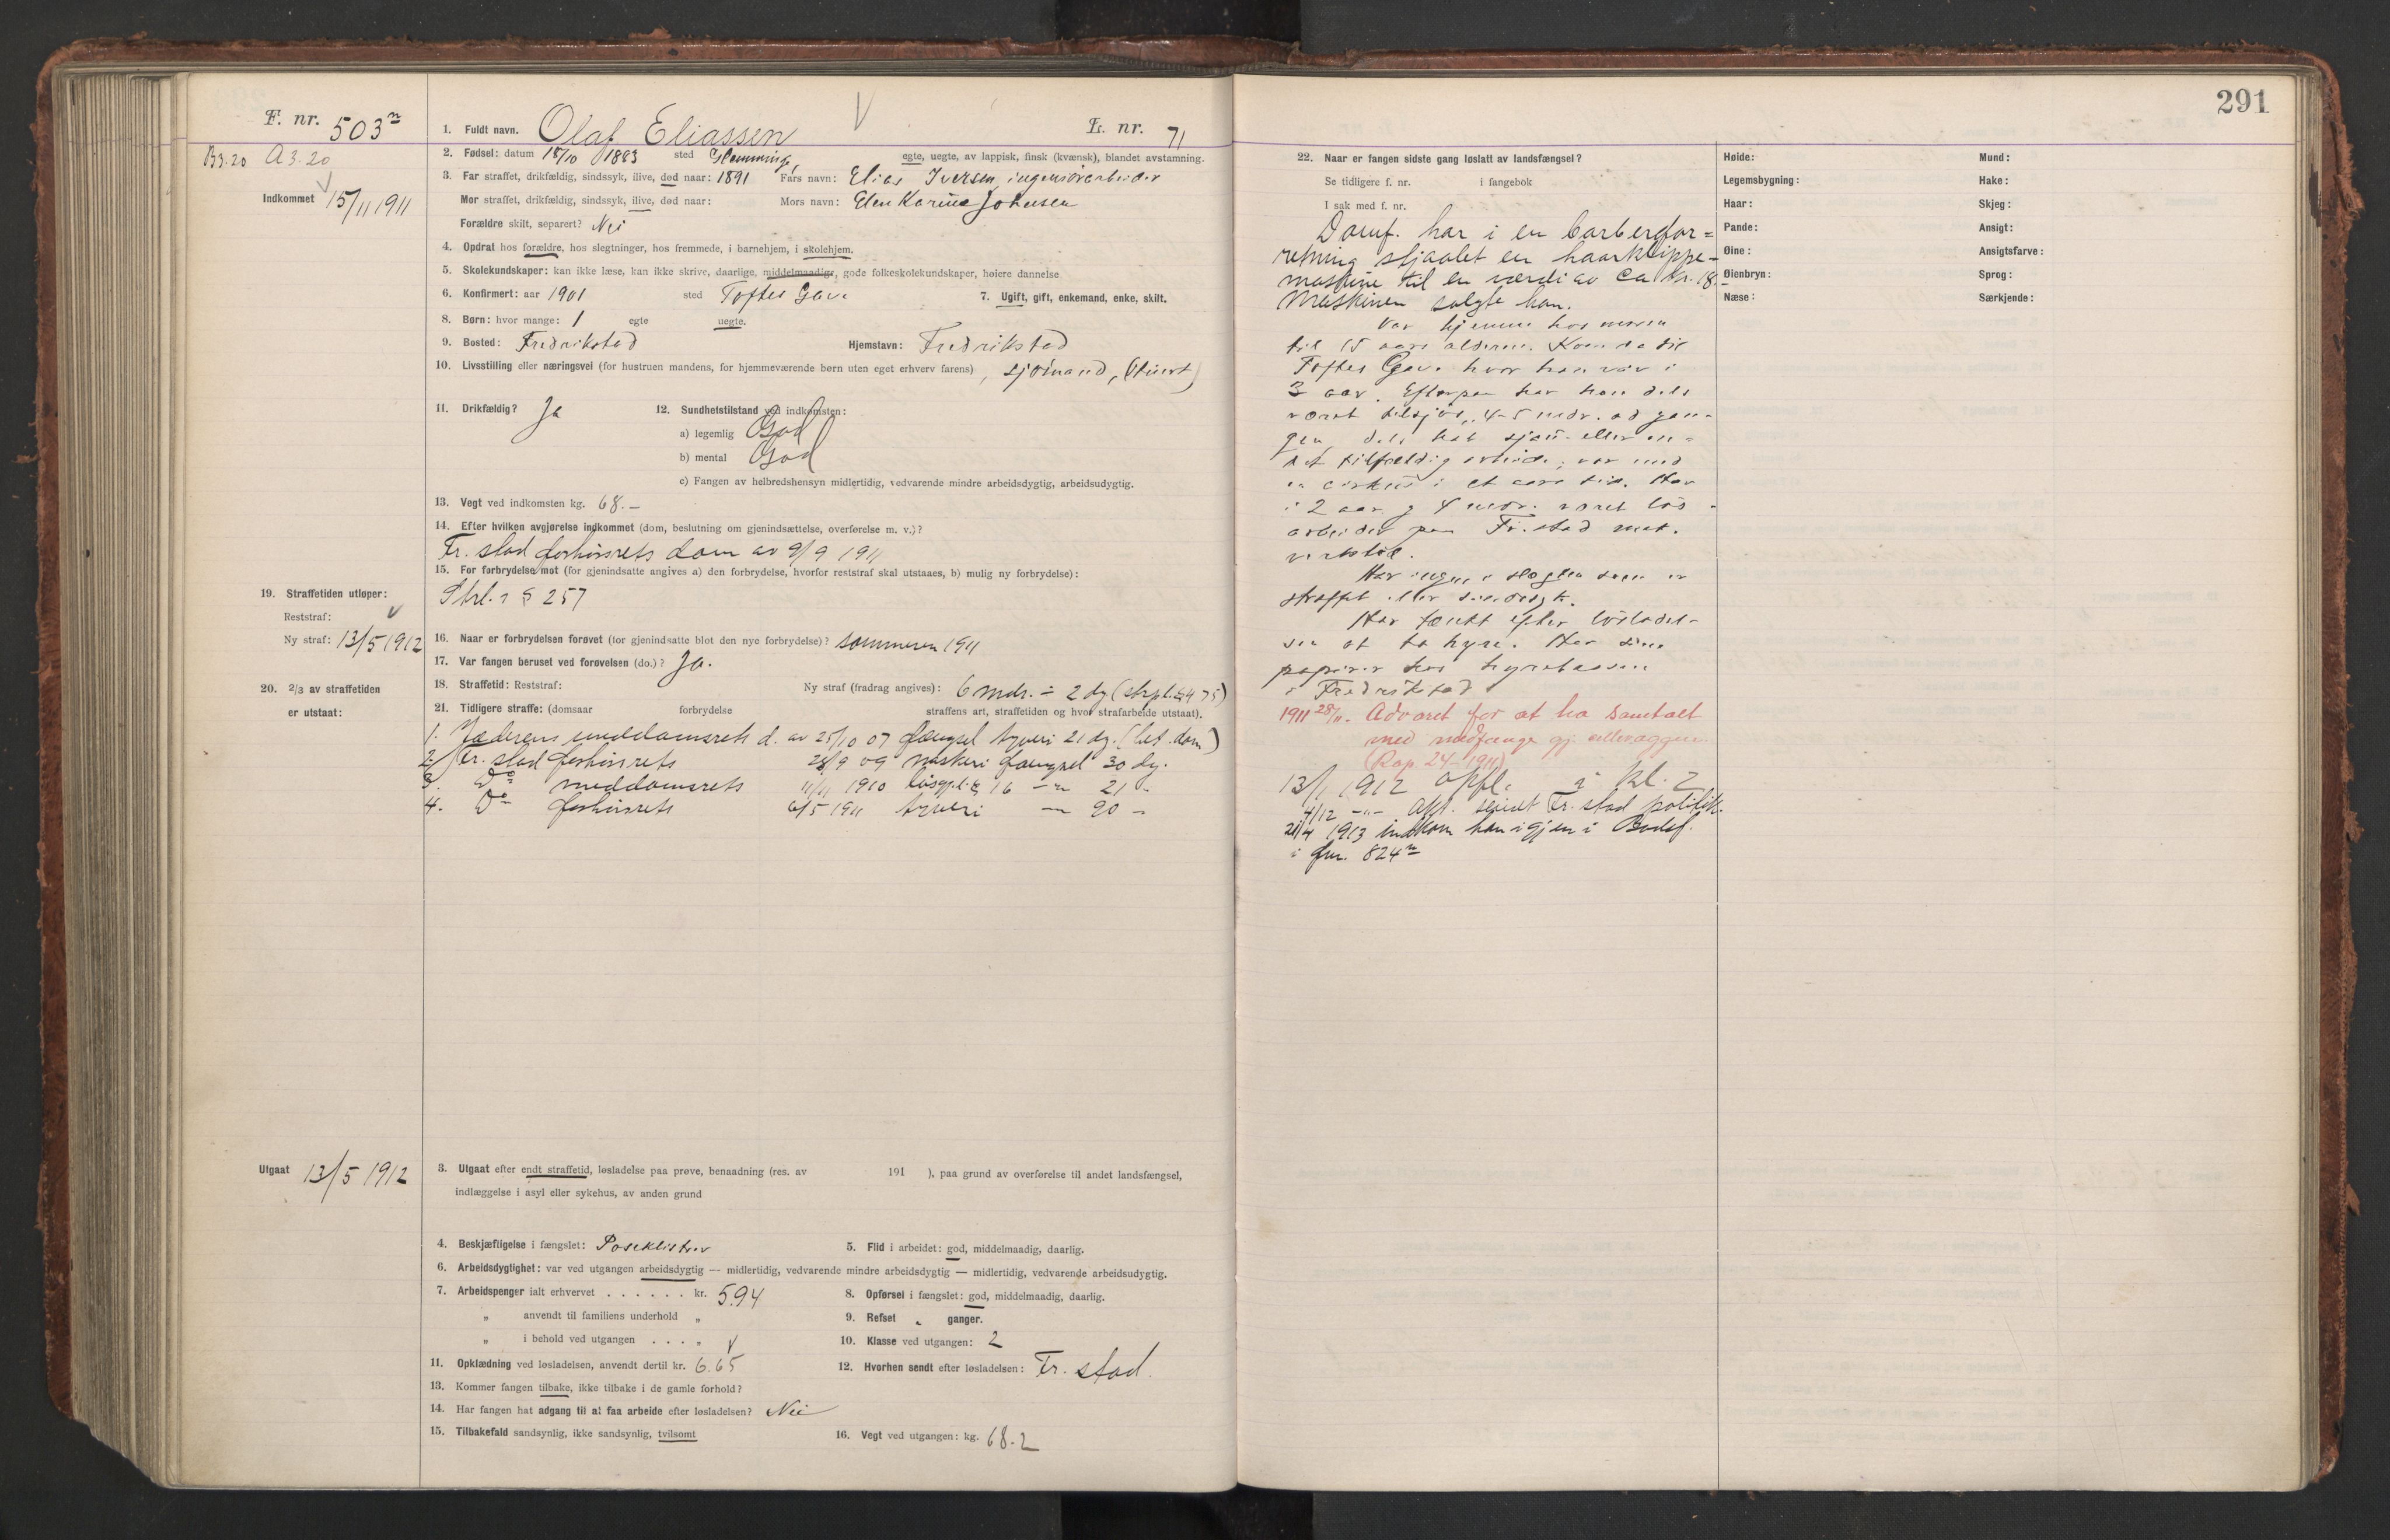 291
F. nr. 503ⁿ
B3.20 A3.20
Indkommet 15/11 1911
1. Fuldt navn. Olaf Eliassen L. nr. 71
2. Fødsel: datum 18/10 1883 sted Glemminge, egte, uegte, av lappisk, finsk (kvænsk), blandet avstamning.
3. Far straffet, drikfældig, sindssyk, ilive, død naar: 1891 Fars navn: Elias Iversen, ingeniørarbeider
Mor straffet, drikfældig, sindssyk, ilive, død naar: Mors navn: Elen Karine Johnsen
Forældre skilt, separert? Nei
4. Opdrat hos forældre, hos slegtninger, hos fremmede, i barnehjem, i skolehjem.
5. Skolekundskaper: kan ikke læse, kan ikke skrive, daarlige, middelmaadige, gode folkeskolekundskaper, høiere dannelse
6. Konfirmert: aar 1901 sted Toftes Gave 7. Ugift, gift, enkemand, enke, skilt.
8. Børn: hvor mange: 1 egte uegte.
9. Bosted: Fredrikstad Hjemstavn: Fredrikstad
10. Livsstilling eller næringsvei (for hustruen mandens, for hjemmeværende børn uten eget erhverv farens), sjømand, (stuert)
11. Drikfældig? Ja 12. Sundhetstilstand ved indkomsten:
a) legemlig God
b) mental God
c) Fangen av helbredshensyn midlertidig, vedvarende mindre arbeidsdygtig, arbeidsudygtig.
13. Vegt ved indkomsten kg. 68.—
14. Efter hvilken avgjørelse indkommet (dom, beslutning om gjenindsættelse, overførelse m. v.)?
Fr.stad forhørsrets dom av 9/9 1911
15. For forbrydelse mot (for gjenindsatte angives a) den forbrydelse, hvorfor reststraf skal utstaaes, b) mulig ny forbrydelse):
Strl. § 257
19. Straffetiden utløper:
Reststraf:
Ny straf: 13/5 1912
16. Naar er forbrydelsen forøvet (for gjenindsatte blot den nye forbrydelse)? sommeren 1911
17. Var fangen beruset ved forøvelsen (do.)? Ja.
20. 2/3 av straffetiden
er utstaat:
18. Straffetid: Reststraf: Ny straf (fradrag angives): 6 mdr. ÷ 2 dg (strpl. § 475)
21. Tidligere straffe: (domsaar forbrydelse straffens art, straffetiden og hvor strafarbeide utstaat).
1. Jæderens meddomsrets d. av 25/10 07 fængsel tyveri 21 dg. (bet. dom)
2. Fr.stad forhørsrets 28/9 09 naskeri fængsel 30 dg.
3. Do meddomsrets 11/11 1910 løsgl. § 16 —"— 21 -
4. Do forhørsrets 6/5 1911 tyveri — 90 -
Utgaat 13/5 1912
3. Utgaat efter endt straffetid, løsladelse paa prøve, benaadning (res. av 191 ), paa grund av overførelse til andet landsfængsel,
indlæggelse i asyl eller sykehus, av anden grund
4. Beskjæftigelse i fængslet: Poseklistrer 5. Flid i arbeidet: god, middelmaadig, daarlig.
6. Arbeidsdygtighet: var ved utgangen arbeidsdygtig — midlertidig, vedvarende mindre arbeidsdygtig — midlertidig, vedvarende arbeidsudygtig.
7. Arbeidspenger ialt erhvervet . . . . . . kr. 5.94 8. Opførsel i fængslet: god, middelmaadig, daarlig.
" anvendt til familiens underhold " 9. Refset „ ganger.
" i behold ved utgangen . . . „ 10. Klasse ved utgangen: 2
11. Opklædning ved løsladelsen, anvendt dertil kr. 6.65 12. Hvorhen sendt efter løsladelsen: Fr.stad.
13. Kommer fangen tilbake, ikke tilbake i de gamle forhold?
14. Har fangen hat adgang til at faa arbeide efter løsladelsen? Nei
15. Tilbakefald sandsynlig, ikke sandsynlig, tvilsomt 16. Vegt ved utgangen: kg. 68.2
22. Naar er fangen sidste gang løslatt av landsfængsel?
Se tidligere f. nr. i fangebok
I sak med f. nr.
Domf. har i en barberfor=
retning stjaalet en haarklippe-
maskine til en værdi av ca kr. 18.-
Maskinen solgte han.
Var hjemme hos moren
til 15 aars alderen. Kom da til
Toftes Gave hvor han var i
3 aar. Efterpaa har han dels
været tilsjøs, 4-5 mdr. ad gan-
gen, dels hat sjau- eller an-
det tilfældig arbeide; var med
en cirkus i et aars tid. Har
i 2 aar og 4 mdr. været løs-
arbeider paa Fr.stad mek.
verksted.
Har ingen i slegten som er
straffet eller sindssyk.
Har tænkt efter løsladel-
sen at ta hyre. Har sine
papirer hos hyrebasen
i Fredrikstad
1911 28/11. Advaret for at ha samtalt
med medfange gj. cellevæggen
(Rap. 24-1911)
13/1 1912 opfl. i kl. 2
4/12 -"- opl. sendt Fr.stad politik.
21/4 1913 indkom han igjen i Bodsf.
i fnr. 824ⁿ
Høide: Mund:
Legemsbygning: Hake:
Haar: Skjeg:
Pande: Ansigt:
Øine: Ansigtsfarve:
Øienbryn: Sprog:
Næse: Særkjende: